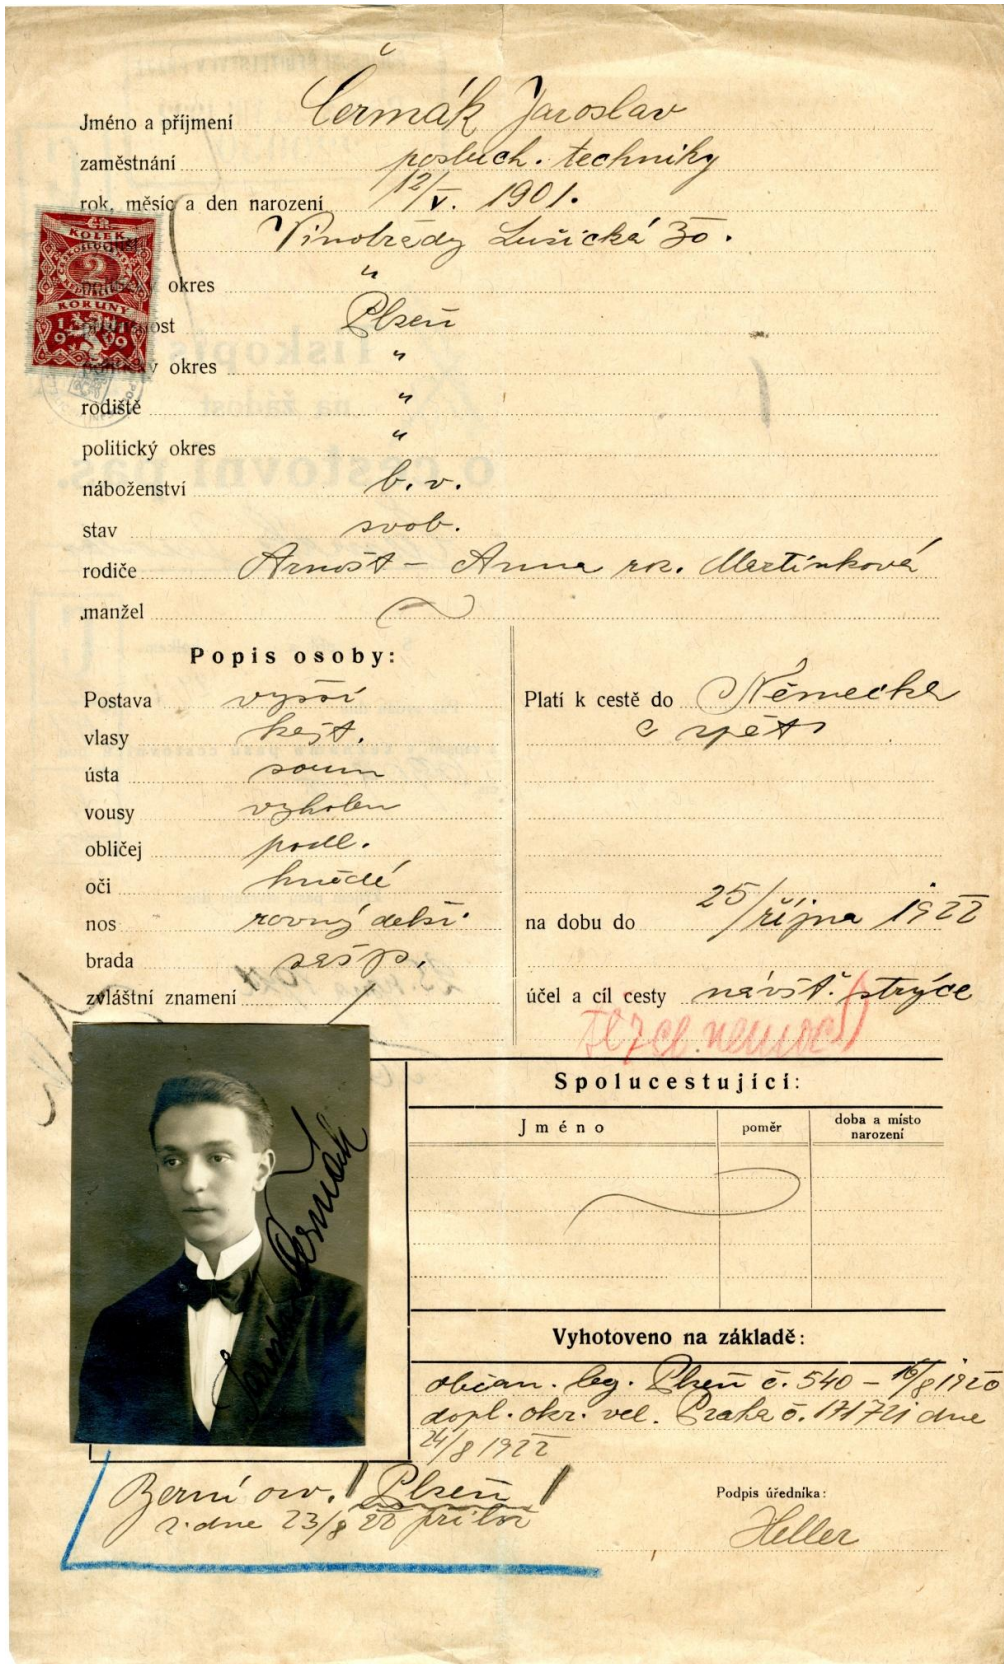 Jméno a příjmení Čermák Jaroslav
zaměstnání posluch. techniky
rok, měsíc a den narození 12/V. 1901.
Vinohrady Lužická 30.
okres "
Plzeň
okres "
rodiště "
politický okres "
náboženství b. v.
stav svob.
rodiče Arnošt – Anna roz. Martínková
manžel
Popis osoby:
Postava vyšší
vlasy kašt.
ústa soum
vousy vyholen
obličej podl.
oči hnědé
nos rovný delší
brada zašp.
zvláštní znamení /
Platí k cestě do Německa
a zpět
na dobu do 25/října 1922
účel a cíl cesty návšt. strýce
Spolucestující:
Jméno
poměr
doba a místo
narození
KOLEK
2
KORUNY
1919
Čermák
Vyhotoveno na základě:
občan. leg. Plzeň č. 540 – 16/8 1920
dopl. okr. vel. Praha č. 171721 dne
24/8 1922
Berní osv. Plzeň
z. dne 23/8 22 přilož
Podpis úředníka:
Heller